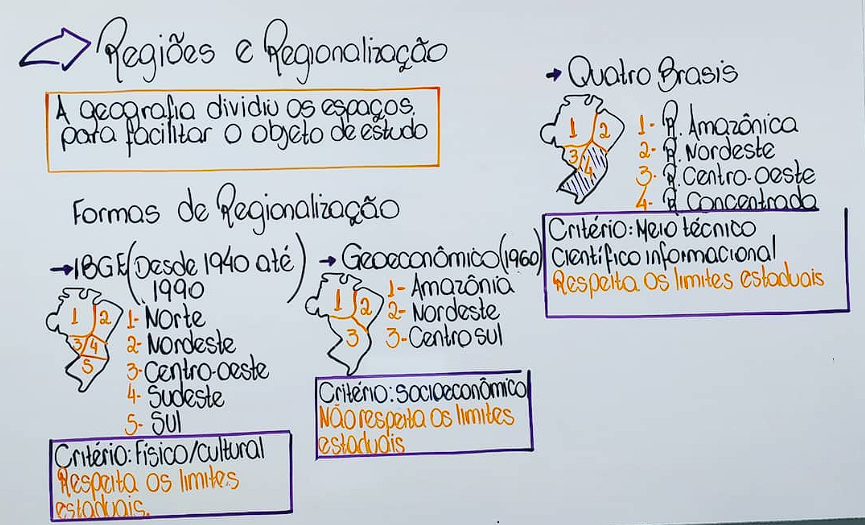 Regiões e Regionalização
A geografia dividiu os espaços,
para facilitar o objeto de estudo
Formas de Regionalização
IBGE (Desde 1940 até
1990
1 2
3 4
5
1- Norte
2- Nordeste
3- Centro-oeste
4- Sudeste
5- Sul
Critério: Físico/cultural
Respeita os limites
estaduais.
Geoeconômico (1960)
1 2
3
1- Amazônia
2- Nordeste
3- Centro sul
Critério: Socioeconômico
Não respeita os limites
estaduais
Quatro Brasis
1 2
3 4
1- R. Amazônica
2- R. Nordeste
3- R. Centro-oeste
4- R Concentrada
Critério: Meio técnico
Científico informacional
Respeita os limites estaduais